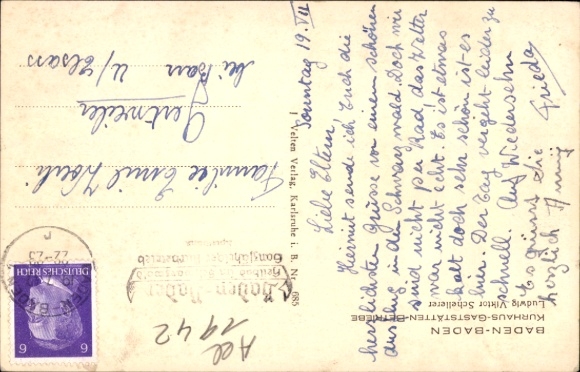 Sonntag 19. VII
Liebe Eltern!
Hiermit sende ich Euch die
herzlichsten Grüsse von einem schönen
Ausflug in den Schwarzwald Doch wir
sind nicht per Rad das Wetter
war nicht echt. Es ist etwas
kalt doch sehr schön ist es
hier. Der Tag vergeht leider zu
schnell. Auf Wiedersehn
Es grüsst die
herzlich Frieda
BADEN-BADEN
KURHAUS-GASTSTÄTTEN-BETRIEBE
Ludwig Viktor Schellerer
Welten Verlag, Karlsruhe i. B. Nr. 685
Familie Emil Koch
Gertweiler
bei Barr
U/Elsass
Baden-Baden
22-23
DEUTSCHES REICH
6
6
1942